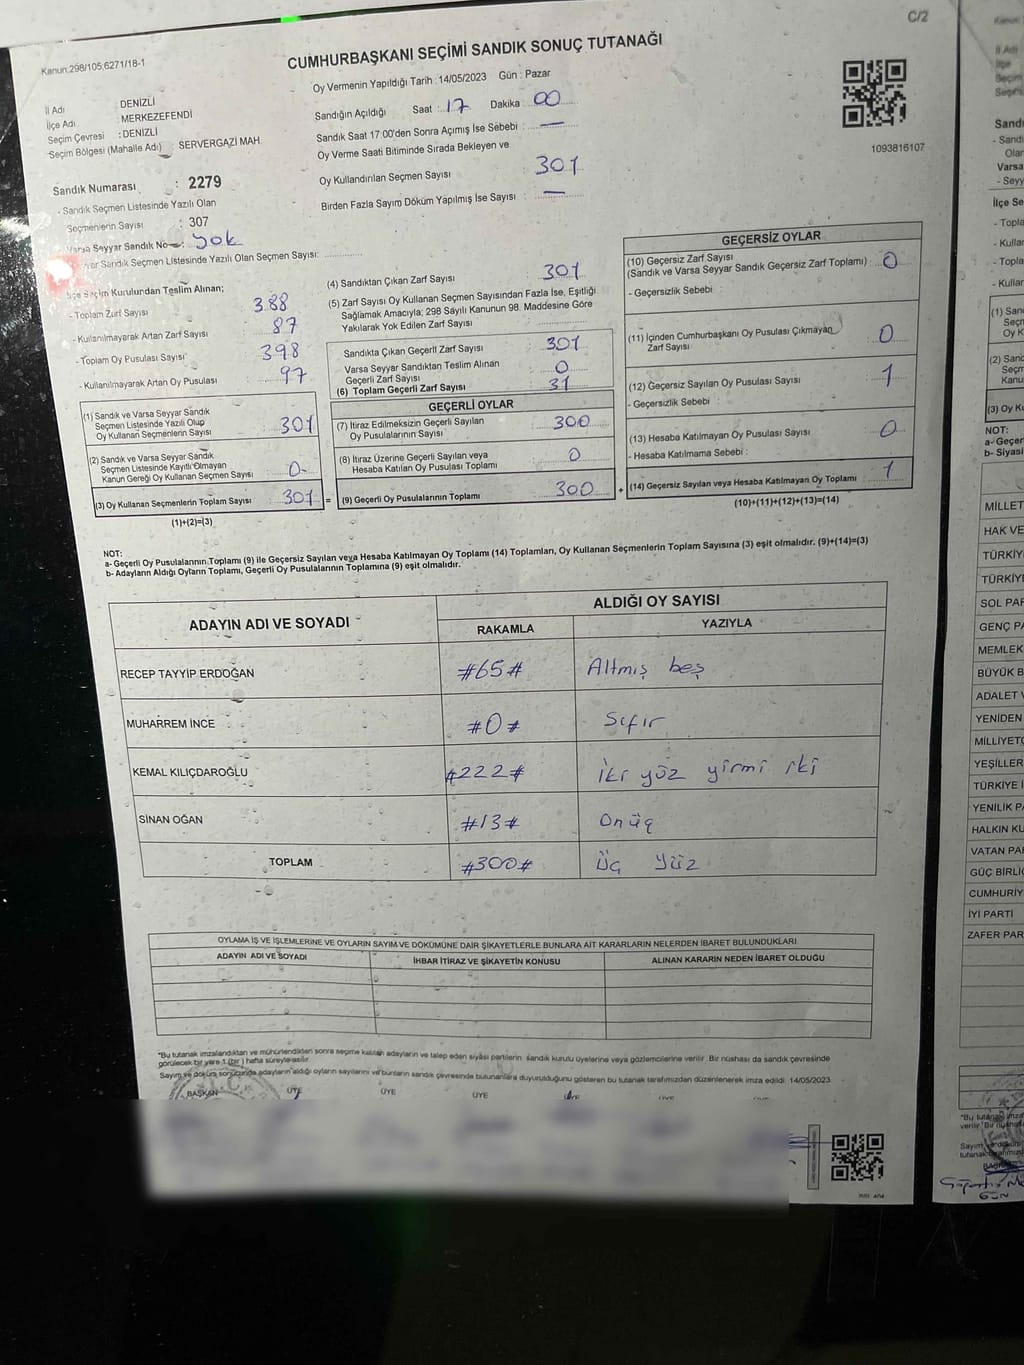 C/2
Kanun:298/105,6271/18-1
CUMHURBAŞKANI SEÇİMİ SANDIK SONUÇ TUTANAĞI
Oy Vermenin Yapıldığı Tarih :14/05/2023 Gün : Pazar
İl Adı DENİZLİ
İlçe Adı : MERKEZEFENDİ
Seçim Çevresi : DENİZLİ
Seçim Bölgesi (Mahalle Adı) : SERVERGAZİ MAH.
Sandık Numarası : 2279
- Sandık Seçmen Listesinde Yazılı Olan
Seçmenlerin Sayısı : 307
Varsa Seyyar Sandık No : yok
Sandık Seçmen Listesinde Yazılı Olan Seçmen Sayısı:
Sandığın Açıldığı Saat : 17 Dakika 00
Sandık Saat 17:00'den Sonra Açımış İse Sebebi : —
Oy Verme Saati Bitiminde Sırada Bekleyen ve
Oy Kullandırılan Seçmen Sayısı 301
Birden Fazla Sayım Döküm Yapılmış İse Sayısı : —
1093816107
İlçe Seçim Kurulundan Teslim Alınan;
- Toplam Zarf Sayısı 388
- Kullanılmayarak Artan Zarf Sayısı 87
- Toplam Oy Pusulası Sayısı 398
- Kullanılmayarak Artan Oy Pusulası 97
(1) Sandık ve Varsa Seyyar Sandık
Seçmen Listesinde Yazılı Olup
Oy Kullanan Seçmenlerin Sayısı 301
(2) Sandık ve Varsa Seyyar Sandık
Seçmen Listesinde Kayıtlı Olmayan
Kanun Gereği Oy Kullanan Seçmen Sayısı 0
(3) Oy Kullanan Seçmenlerin Toplam Sayısı 301
(1)+(2)=(3)
(4) Sandıktan Çıkan Zarf Sayısı 301
(5) Zarf Sayısı Oy Kullanan Seçmen Sayısından Fazla İse, Eşitliği
Sağlamak Amacıyla; 298 Sayılı Kanunun 98. Maddesine Göre
Yakılarak Yok Edilen Zarf Sayısı
Sandıkta Çıkan Geçerli Zarf Sayısı 301
Varsa Seyyar Sandıktan Teslim Alınan
Geçerli Zarf Sayısı 0
(6) Toplam Geçerli Zarf Sayısı 31
GEÇERLİ OYLAR
(7) İtiraz Edilmeksizin Geçerli Sayılan
Oy Pusulalarının Sayısı 300
(8) İtiraz Üzerine Geçerli Sayılan veya
Hesaba Katılan Oy Pusulası Toplamı 0
= (9) Geçerli Oy Pusulalarının Toplamı 300 +
GEÇERSİZ OYLAR
(10) Geçersiz Zarf Sayısı
(Sandık ve Varsa Seyyar Sandık Geçersiz Zarf Toplamı) : 0
- Geçersizlik Sebebi :
(11) İçinden Cumhurbaşkanı Oy Pusulası Çıkmayan
Zarf Sayısı 0
(12) Geçersiz Sayılan Oy Pusulası Sayısı 1
- Geçersizlik Sebebi :
(13) Hesaba Katılmayan Oy Pusulası Sayısı 0
- Hesaba Katılmama Sebebi :
(14) Geçersiz Sayılan veya Hesaba Katılmayan Oy Toplamı 1
(10)+(11)+(12)+(13)=(14)
NOT:
a- Geçerli Oy Pusulalarının Toplamı (9) ile Geçersiz Sayılan veya Hesaba Katılmayan Oy Toplamı (14) Toplamları, Oy Kullanan Seçmenlerin Toplam Sayısına (3) eşit olmalıdır. (9)+(14)=(3)
b- Adayların Aldığı Oyların Toplamı, Geçerli Oy Pusulalarının Toplamına (9) eşit olmalıdır.
ADAYIN ADI VE SOYADI ALDIĞI OY SAYISI
RAKAMLA YAZIYLA
RECEP TAYYİP ERDOĞAN #65# Altmış beş
MUHARREM İNCE #0# Sıfır
KEMAL KILIÇDAROĞLU #222# iki yüz yirmi iki
SİNAN OĞAN #13# Onüç
TOPLAM #300# Üç Yüz
OYLAMA İŞ VE İŞLEMLERİNE VE OYLARIN SAYIM VE DÖKÜMÜNE DAİR ŞİKAYETLERLE BUNLARA AİT KARARLARIN NELERDEN İBARET BULUNDUKLARI
ADAYIN ADI VE SOYADI İHBAR İTİRAZ VE ŞİKAYETİN KONUSU ALINAN KARARIN NEDEN İBARET OLDUĞU
*Bu tutanak imzalandıktan ve mühürlendikten sonra seçime katılan adayların ve talep eden siyasi partilerin sandık kurulu üyelerine veya gözlemcilerine verilir. Bir nüshası da sandık çevresinde
görülecek bir yere 1 (bir) hafta süreyle asılır.
Sayım ve döküm sonucunda adayların aldığı oyların sayılarını ve bunların sandık çevresinde bulunanlara duyurulduğunu gösteren bu tutanak tarafımızdan düzenlenerek imza edildi. 14/05/2023
BAŞKAN ÜYE ÜYE ÜYE
Sandı
Varsa
- Seyy
İlçe Se
- Topla
- Kullar
- Topla
- Kullar
(1) San
Seçm
Oy K
(3) Oy K
NOT:
a- Geçer
b- Siyasi
MİLLET
HAK VE
TÜRKİY
TÜRKİYE
SOL PAR
GENÇ PA
MEMLEK
BÜYÜK B
ADALET V
YENİDEN
MİLLİYETÇ
YEŞİLLER
TÜRKİYE İ
YENİLİK PA
HALKIN KU
VATAN PAR
GÜÇ BİRLİĞ
CUMHURİY
İYİ PARTİ
ZAFER PAR